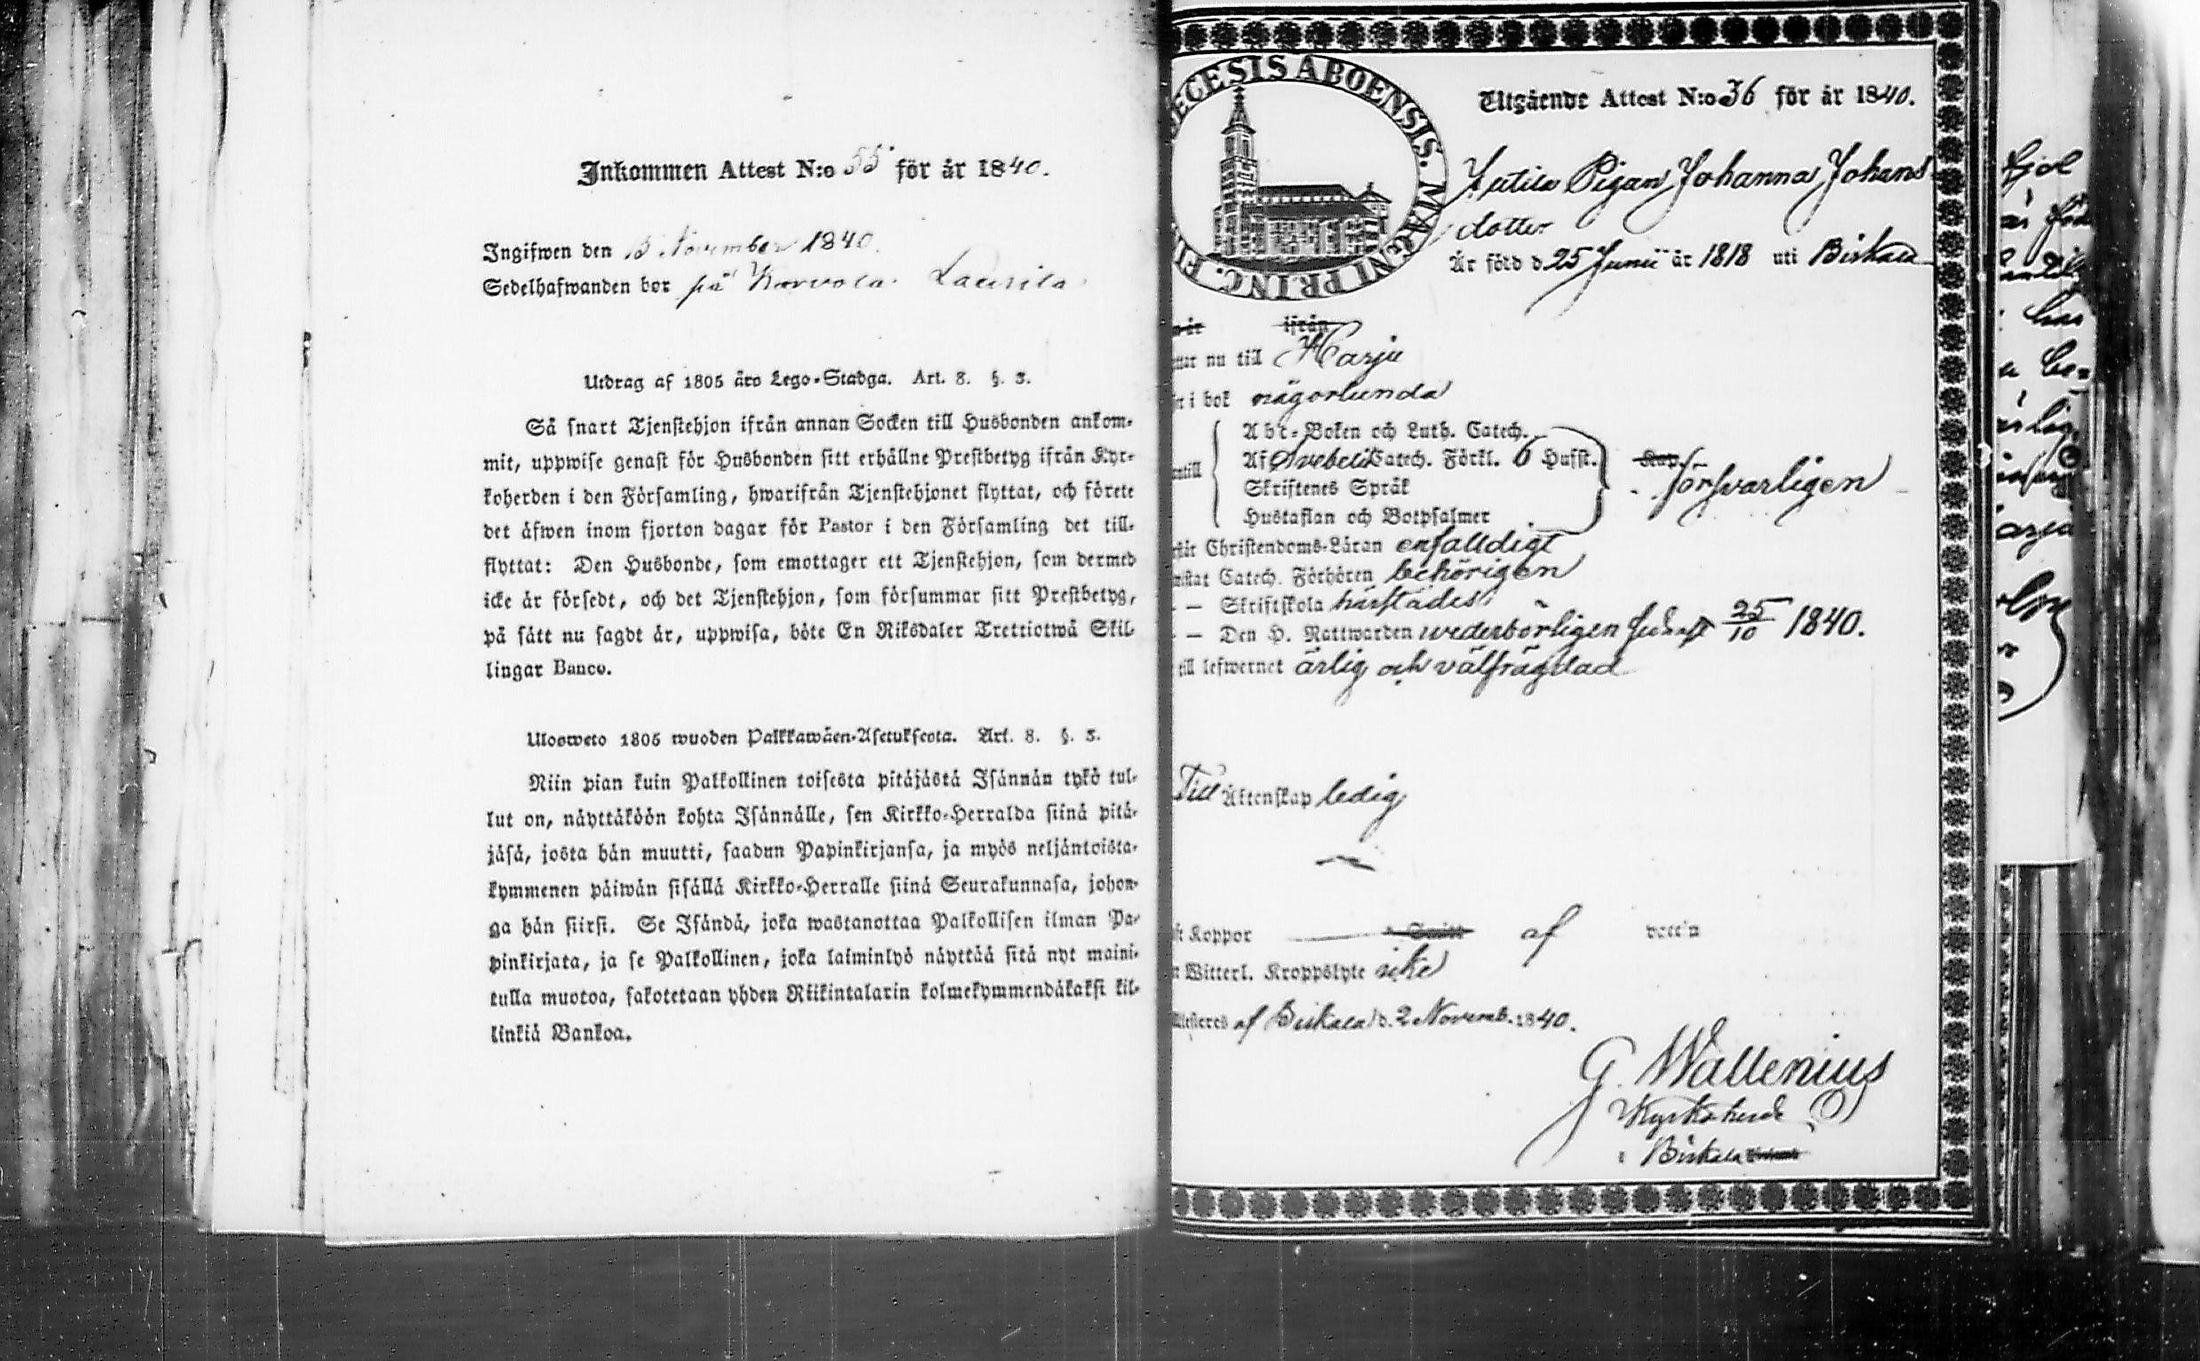 Inkommen Attest N:o 55 för år 1840.
Ingifwen den 13 November 1840.
Sedelhafwanden bor på Korvola Laurila
Utdrag af 1805 års Lego-Stadga. Art. 8. §. 3.
Så snart Tjenstehjon ifrån annan Socken till Husbonden ankom-
mit, uppwise genast för Husbonden sitt erhållne Prestbetyg ifrån Kyr-
koherden i den Församling, hwarifrån Tjenstehjonet flyttat, och förete
det äfwen inom fjorton dagar för Pastor i den Församling det till-
flyttat: Den Husbonde, som emottager ett Tjenstehjon, som dermed
icke är försedt, och det Tjenstehjon, som försummar sitt Prestbetyg,
på sätt nu sagdt är, uppwisa, böte En Riksdaler Trettiotwå Skil-
lingar Banco.
Ulosweto 1805 wuoden Palkkawäen-Asetuksesta. Art. 8. §. 3.
Niin pian kuin Palkollinen toisesta pitäjästä Isännän tykö tul-
lut on, näyttäköön kohta Isännälle, sen Kirkko-Herralda siinä pitä-
jäsä, josta hän muutti, saadun Papinkirjansa, ja myös neljäntoista-
kymmenen päiwän sisällä Kirkko-Herralle siinä Seurakunnasa, johon-
ga hän siirsi. Se Isändä, joka wastanottaa Palkollisen ilman Pa-
pinkirjata, ja se Palkollinen, joka laiminlyö näyttää sitä nyt maini-
tulla muotoa, sakotetaan yhden Riikintalarin kolmekymmendäkaksi kil-
linkiä Bankoa.
ECESIS ABOENSIS. MAGNI PRINC. FI
Utgående Attest N:o 36 för år 1840.
Pigan Johanna Johans
dotter
Är född d. 25 Junii år 1818 uti Birkala
ifrån
nu till Harju
i bok någorlunda
Abc-Boken och Luth. Catech.
Af Svebelii Catech. Förkl. 6 Hufst.
Skriftenes Språk
Hustaflan och Botpsalmer
försvarligen
Christendoms-Läran enfalldigt
Catech. Förhören behörigen
— Skriftskola härstädes
— Den H. Nattwarden wederbörligen senast 25/10 1840.
till lefwernet ärlig och välfrägdad
Till Äktenskap ledig
Koppor af vacc'n
Witterl. Kroppslyte icke
af Birkala d. 2 Novemb. 1840.
G. Wallenius
Kyrkoherde
i Birkala